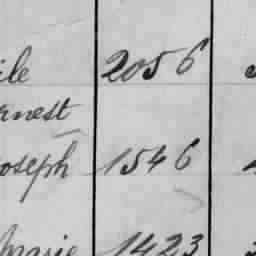 ile 2056
rnest
oseph 1546
Marie 1423